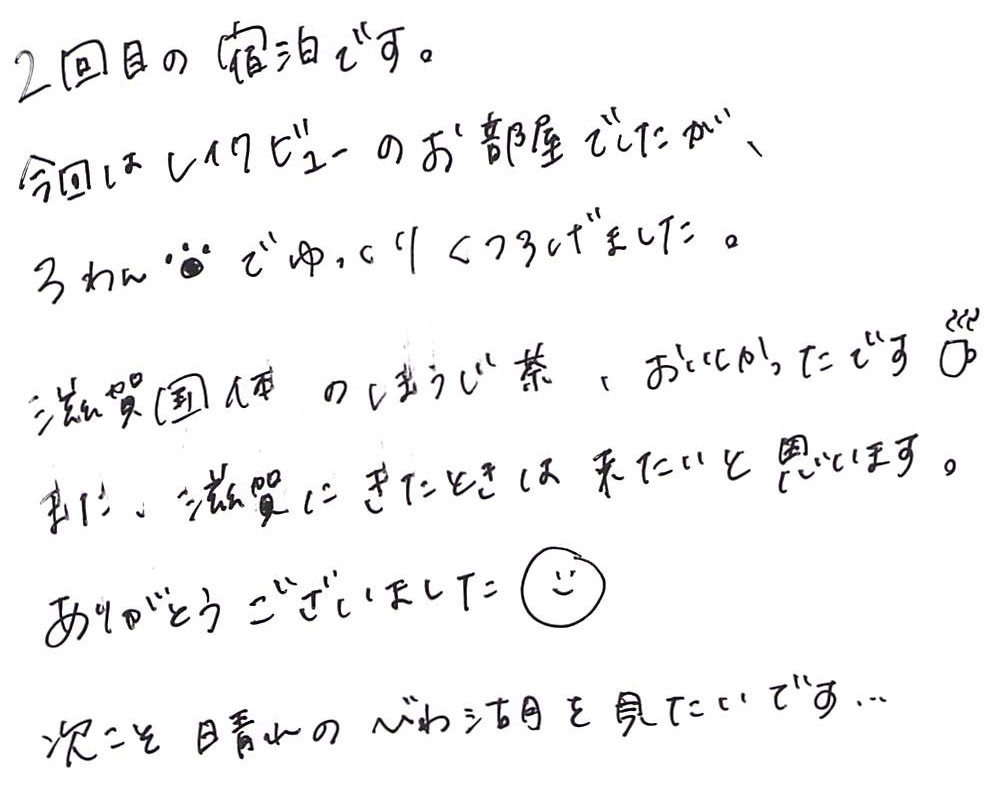 2回目の宿泊です。
今回はレイクビューのお部屋でしたが、
3わんでゆっくりくつろげました。
滋賀国体のほうじ茶、おいしかったです
また、滋賀にきたときは来たいと思います。
ありがとうございました
次こそ晴れのびわ湖を見たいです…